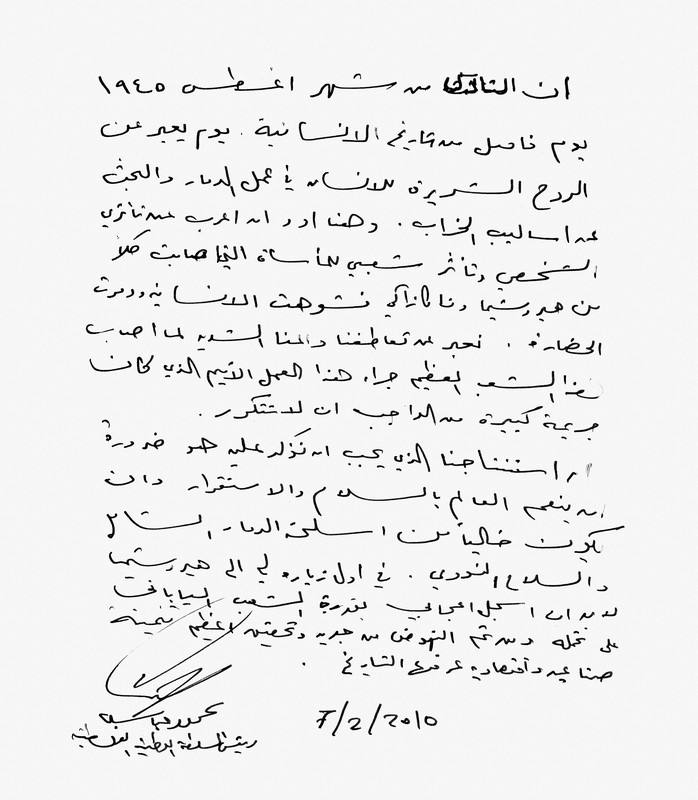 ان الثالث من شهر اغسطس ١٩٤٥
يوم فاصل من تاريخ الانسانية . يوم يعبر عن
الروح الشريرة للانسان في عمل الدمار والبحث
عن اساليب الخراب . وهنا اود ان اعرب عن تأثري
الشخصي وتأثر شعبي للمأساة التي اصابت كلاً
من هيروشيما وناكازاكي فشوهت الانسانية ودمرت
الحضارة . نعبر عن تعاطفنا والمنا الشديد لما اصاب
هذا الشعب العظيم جراء هذا العمل الأثيم الذي كان
جريمة كبيرة من الواجب ان لا تتكرر .
ان استنتاجنا الذي يجب ان نؤكد عليه هو ضرورة
ان ينعم العالم بالسلام والاستقرار وان
يكون خالياً من اسلحة الدمار الشامل
والسلاح النووي . في اول زيارة لي الى هيروشيما
لا بد ان اسجل اعجابي بقدرة الشعب الياباني
على تحمله ومن ثم النهوض من جديد وتحقيق اعظم تنمية
صناعية واقتصادية عرفها التاريخ .
محمود عباس
رئيس السلطة الوطنية الفلسطينية
7/2/2010